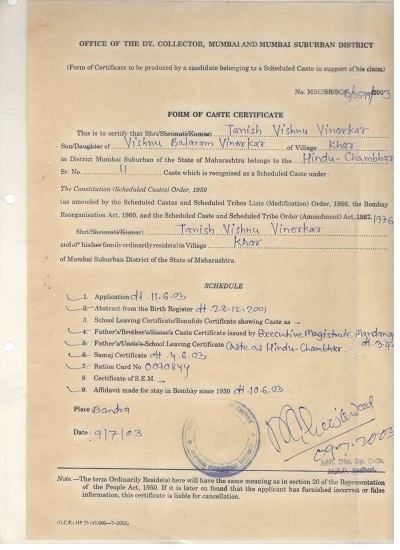 OFFICE OF THE DY. COLLECTOR, MUMBAI AND MUMBAI SUBURBAN DISTRICT
(Form of Certificate to be produced by a candidate belonging to a Scheduled Caste in support of his claim)
No. MSC/SR/SC/
FORM OF CASTE CERTIFICATE
This is to certify that Shri/Shrimati/Kumari Tanish Vishnu Vinerkar
Son/Daughter of Vishnu Balaram Vinerkar of Village Khar
in District Mumbai Suburban of the State of Maharashtra belongs to the Hindu-Chambhar
Sr. No. 11 Caste which is recognised as a Scheduled Caste under :
The Constitution (Scheduled Castes) Order, 1950
(as amended by the Scheduled Castes and Scheduled Tribes Lists (Modification) Order, 1956, the Bombay
Reorganisation Act, 1960, and the Scheduled Caste and Scheduled Tribe Order (Amendment) Act, 1967. 1976
Shri/Shrimati/Kumari Tanish Vishnu Vinerkar
and/of his/her family ordinarily reside(s) in Village Khar
of Mumbai Suburban District of the State of Maharashtra.
SCHEDULE
1. Application dt. 11.6.03
2. Abstract from the Birth Register dt. 28.12.2001
3. School Leaving Certificate/Bonafide Certificate showing Caste as —
4. Father's/Brother's/Sister's Caste Certificate issued by Executive Magistrate, Mandangad
5. Father's/Uncle's-School Leaving Certificate Caste as Hindu-Chambhar.
6. Samaj Certificate dt. 4.6.03
7. Ration Card No 0070844
8. Certificate of S.E.M. —
9. Affidavit made for stay in Bombay since 1950 dt. 10.6.03
Place : Bandra
Date : 9/7/03
09.7.2003
Addl. Dist. Dy. Colle.
Note.—The term Ordinarily Reside(s) here will have the same meaning as in section 20 of the Representation
of the People Act, 1950. If it is later on found that the applicant has furnished incorrect or false
information, this certificate is liable for cancellation.
(G.C.P.) HP 15 (45,000—7-2002)